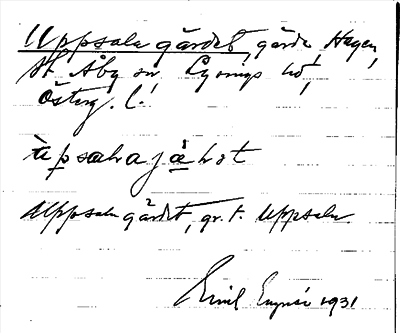 Uppsala gärdet, gärde, Hagen,
St. Åby sn, Lysings hd,
Österg. l.
ùpsalajä̀ḷət
Uppsala gärdet, gr. t. Uppsala
Emil 1931